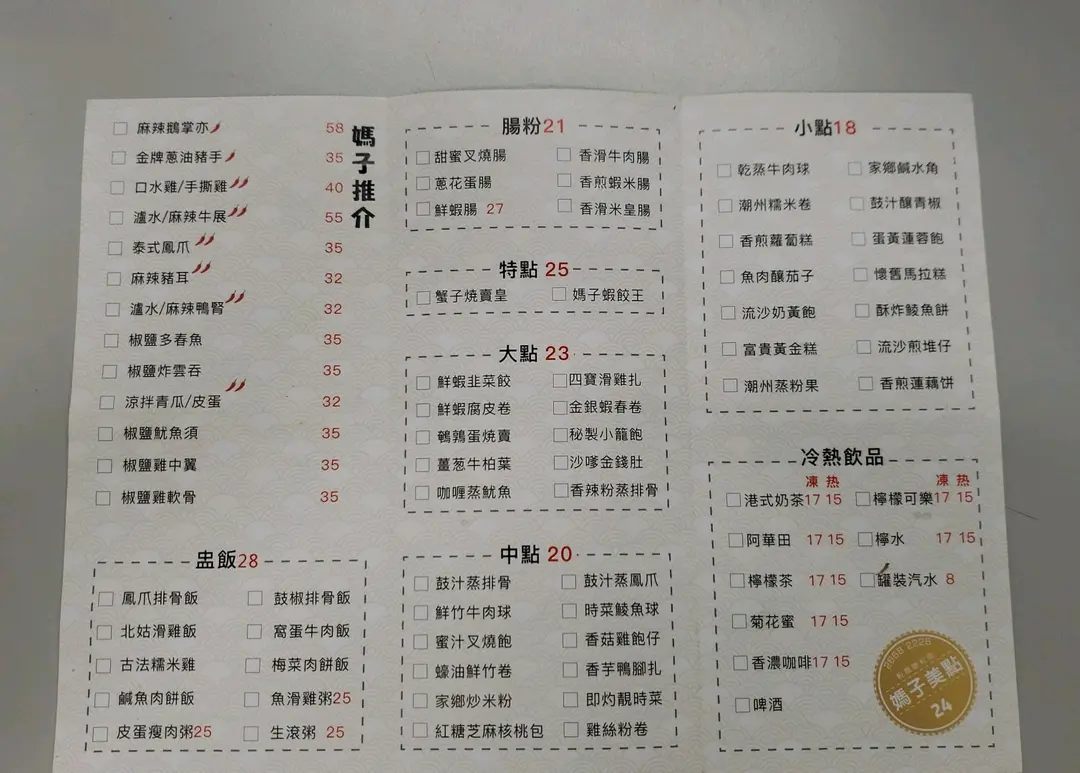 媽子推介
麻辣鵝掌亦 58
金牌蔥油豬手 35
口水雞/手撕雞 40
瀘水/麻辣牛展 55
泰式鳳爪 35
麻辣豬耳 32
瀘水/麻辣鴨腎 32
椒鹽多春魚 35
椒鹽炸雲吞 35
涼拌青瓜/皮蛋 32
椒鹽魷魚須 35
椒鹽雞中翼 35
椒鹽雞軟骨 35
盅飯28
鳳爪排骨飯 鼓椒排骨飯
北姑滑雞飯 窩蛋牛肉飯
古法糯米雞 梅菜肉餅飯
鹹魚肉餅飯 魚滑雞粥25
皮蛋瘦肉粥25 生滾粥 25
腸粉21
甜蜜叉燒腸 香滑牛肉腸
蔥花蛋腸 香煎蝦米腸
鮮蝦腸 27 香滑米皇腸
特點 25
蟹子燒賣皇 媽子蝦餃王
大點 23
鮮蝦韭菜餃 四寶滑雞扎
鮮蝦腐皮卷 金銀蝦春卷
鵪鶉蛋燒賣 秘製小籠飽
薑葱牛柏葉 沙嗲金錢肚
咖喱蒸魷魚 香辣粉蒸排骨
中點 20
鼓汁蒸排骨 鼓汁蒸鳳爪
鮮竹牛肉球 時菜鯪魚球
蜜汁叉燒飽 香菇雞飽仔
蠔油鮮竹卷 香芋鴨腳扎
家鄉炒米粉 即灼靚時菜
紅糖芝麻核桃包 雞絲粉卷
小點18
乾蒸牛肉球 家鄉鹹水角
潮州糯米卷 鼓汁釀青椒
香煎蘿蔔糕 蛋黃蓮蓉飽
魚肉釀茄子 懷舊馬拉糕
流沙奶黃飽 酥炸鯪魚餅
富貴黃金糕 流沙煎堆仔
潮州蒸粉果 香煎蓮藕饼
冷熱飲品
凍 热 凍 热
港式奶茶17 15 檸檬可樂17 15
阿華田 17 15 檸水 17 15
檸檬茶 17 15 罐裝汽水 8
菊花蜜 17 15
香濃咖啡17 15
啤酒
2668 2226
媽子美點
24